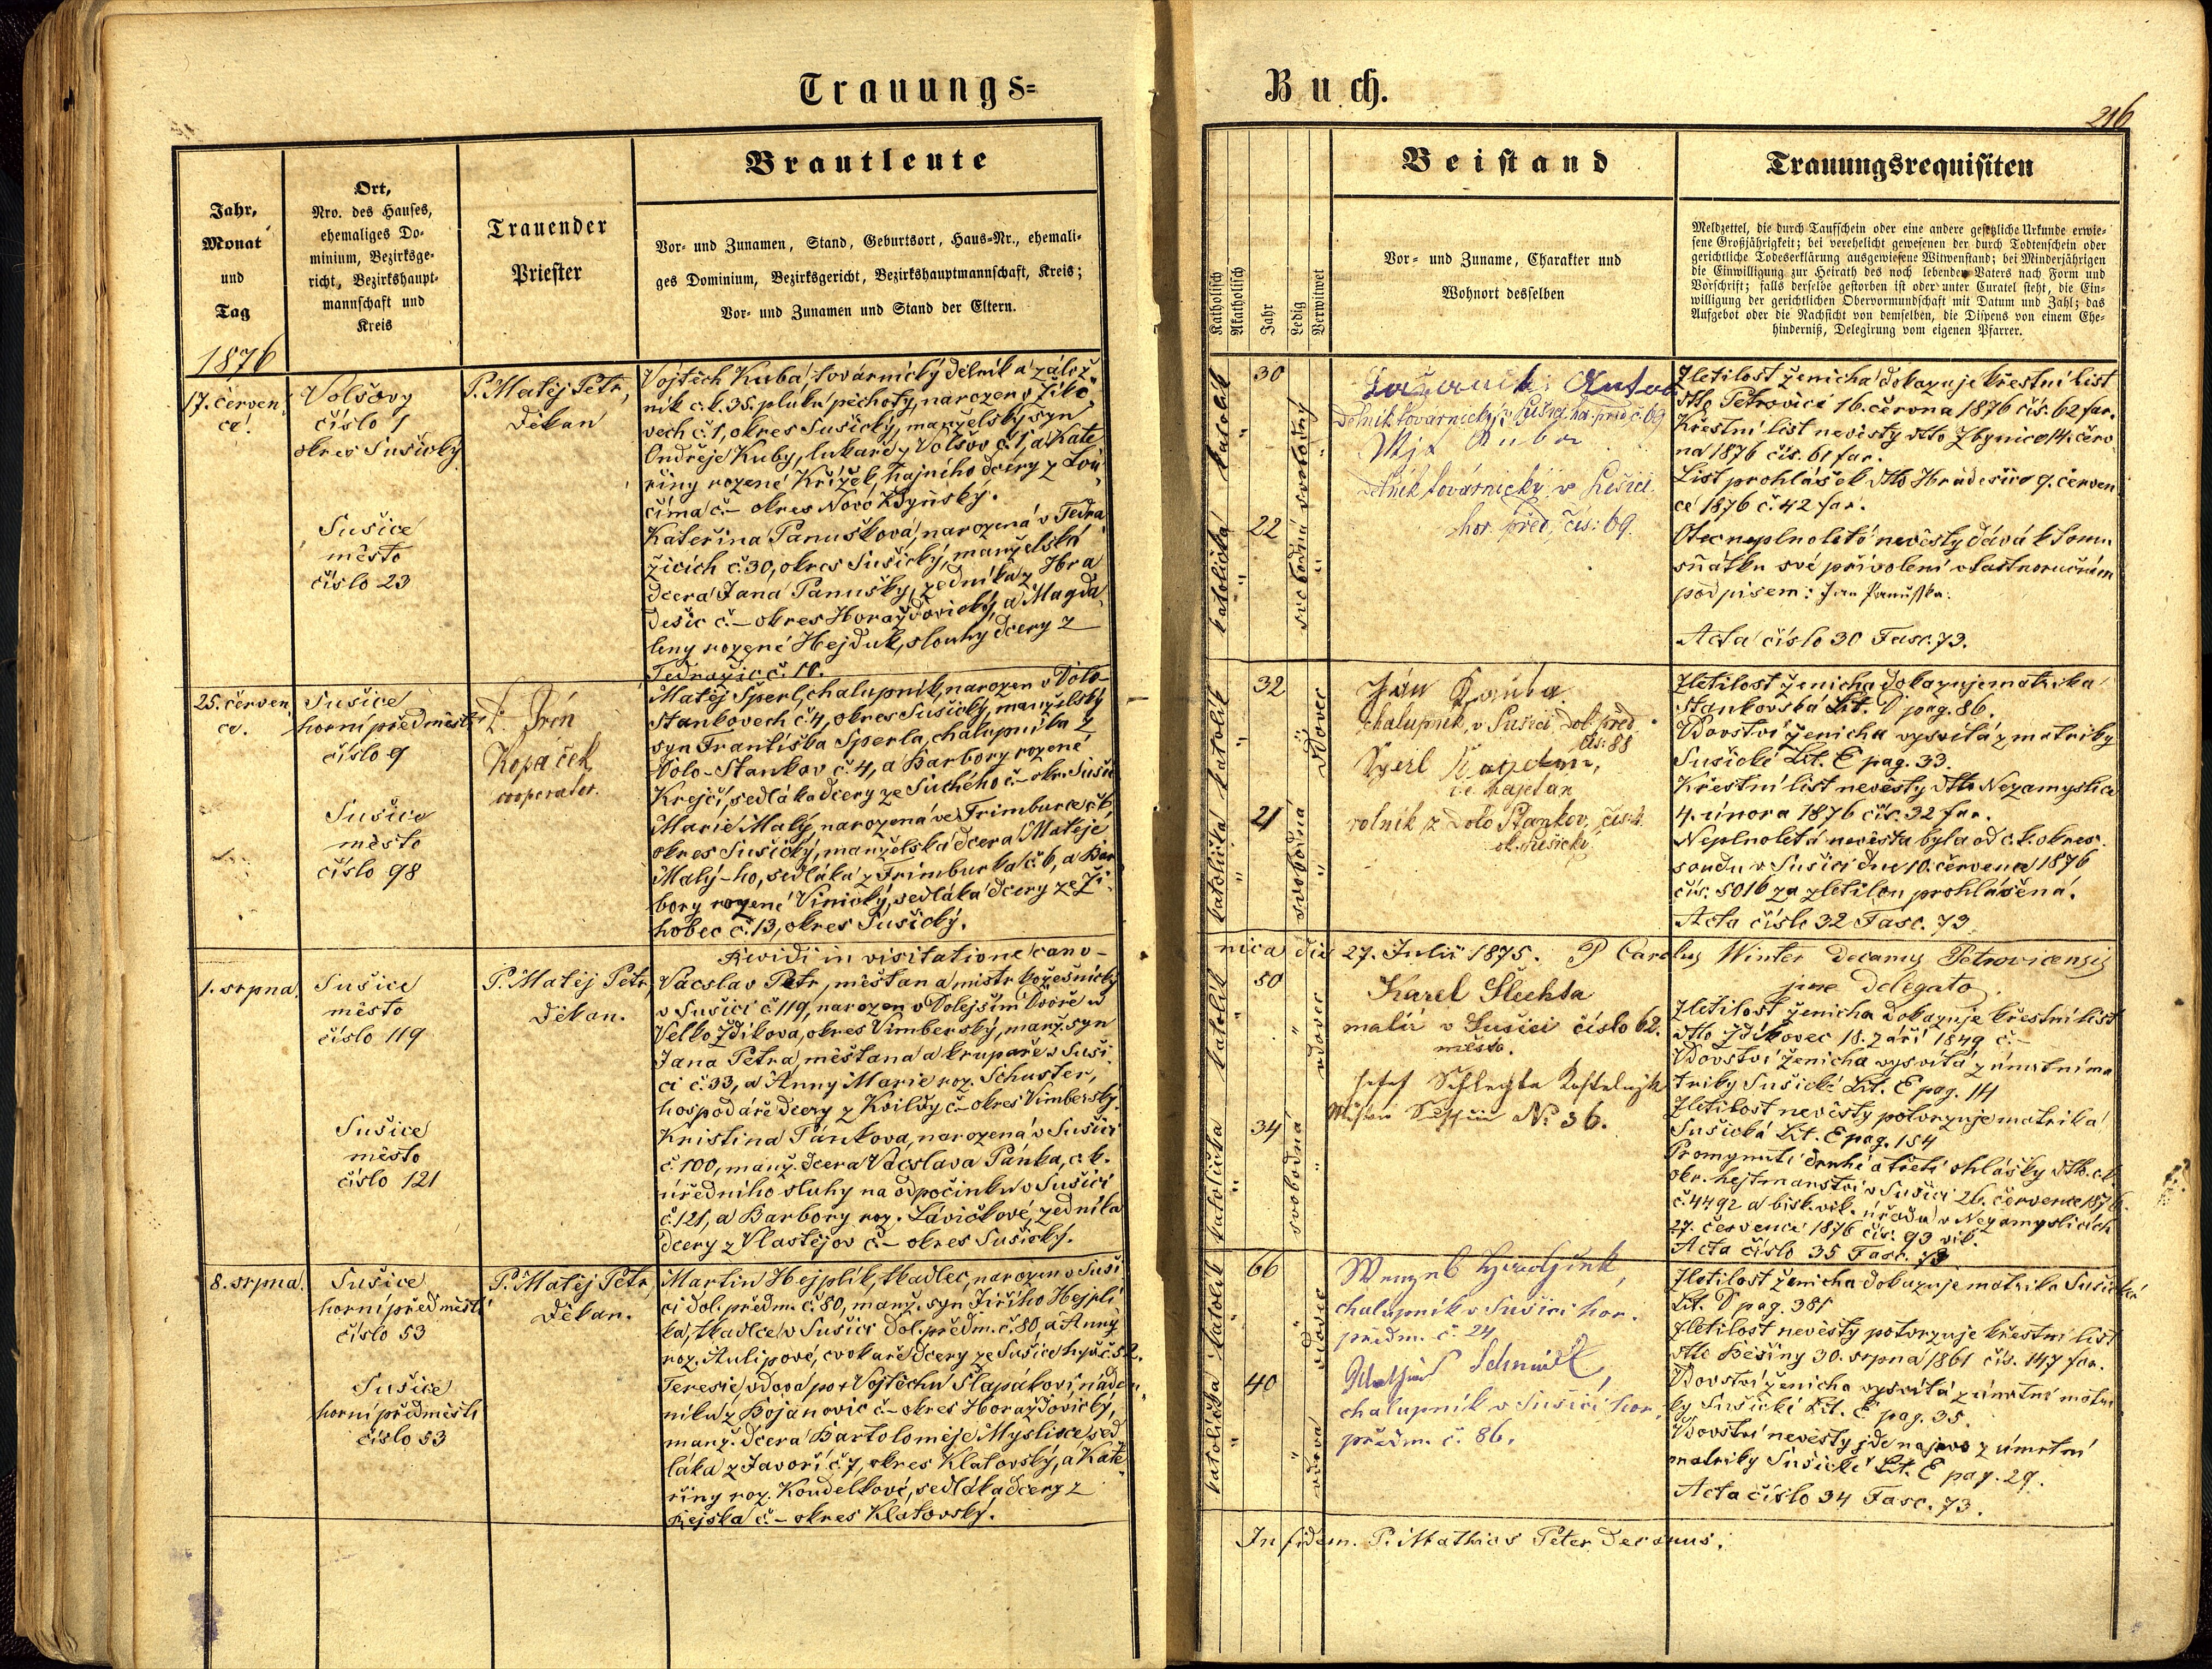 Trauungs=
Buch.
216
Jahr,
Monat
und
Tag
Ort,
Nro. des Hauses,
ehemaliges Do-
minium, Bezirksge-
richt, Bezirkshaupt-
mannschaft und
Kreis
Trauender
Priester
Brautleute
Vor- und Zunamen, Stand, Geburtsort, Haus-Nr., ehemali-
ges Dominium, Bezirksgericht, Bezirkshauptmannschaft, Kreis;
Vor- und Zunamen und Stand der Eltern.
Katholisch
Akatholisch
Jahr
Ledig
Verwitwet
Beistand
Vor- und Zuname, Charakter und
Wohnort desselben
Trauungsrequisiten
Meldzettel, die durch Taufschein oder eine andere gesetzliche Urkunde erwie-
sene Großjährigkeit; bei verehelicht gewesenen der durch Todtenschein oder
gerichtliche Todeserklärung ausgewiesene Witwenstand; bei Minderjährigen
die Einwilligung zur Heirath des noch lebenden Vaters nach Form und
Vorschrift; falls derselbe gestorben ist oder unter Curatel steht, die Ein-
willigung der gerichtlichen Obervormundschaft mit Datum und Zahl; das
Aufgebot oder die Nachsicht von demselben, die Dispens von einem Ehe-
hinderniß, Delegirung vom eigenen Pfarrer.
1876
17. červen
ce.
Volšovy
číslo 1
okres Sušický
Sušice
město
číslo 23
P. Matěj Petr,
děkan
Vojtěch Kuba, továrnický dělník a zálož-
ník c. k. 35. pluku pěchoty, narozen v Žiko-
vech č. 1, okres Sušický, manželský syn
Ondřeje Kuby, lukaře z Volšov č. 1, a Kate
řiny rozené Křížek, hajného dcery z Lou
číma č.- okres Novo Kdyňský.
Kateřina Panušková, narozená v Tedra
žicích č. 30, okres Sušický, manželská
dcera Jana Panušky, zedníka z Hra
dešic č.- okres Horažďovický, a Magda
leny rozené Hejduk, slouhy dcery z
Tedražic č. 10.
katolík
30
svobodný
katolička
22
svobodná
Antos
Dělník továrnický v Sušici ho. před. č. 69
Kuba
dělník továrnický v Sušici
hor. před. čís: 69.
Zletilost ženicha dokazuje křestní list
dtto Petrovice 16. června 1876 čís. 62 far.
Křestní list nevěsty dtto Zbynice 14. červ
na 1876 čís. 61 far.
List prohlášek dtto Hradešice 9. červen
ce 1876 č. 42 far.
Otec neplnoleté nevěsty dává k tomu
sňátku své přivolení vlastnoručním
podpisem: Jan Panuška.
Acta číslo 30 Fasc. 73.
25. červen
ce.
Sušice
horní předměstí
číslo 9
Sušice
město
číslo 98
P. Jan
Kopaček
cooperator
Matěj Šperl, chalupník, narozen v Dolo-
Stankovech č. 4, okres Sušický, manželský
syn Františka Šperla, chalupníka z
Dolo-Stankov č. 4, a Barbory rozené
Krejčí, sedláka dcery ze Suchého č.- okr. Sušic
Marie Malý, narozená ve Trimburce č. 6,
okres Sušický, manželská dcera Matěje
Malý-ho, sedláka z Trimburka č. 6, a Bar
bory rozené Vinický, sedláka dcery ze Ži
hobec č. 13, okres Sušický.
katolík
32
vdovec
katolička
21
svobodná
Ján Kouba
chalupník, v Sušici Dol. před.
čís: 88
Šperl Kajetan,
Kajetan
rolník z Dolo Stankov, čís: 4
ok. Sušický
Zletilost ženicha dokazuje matrika
Stankovská Lit. D pag. 86.
Vdovství ženicha vysvítá z matriky
Sušické Lit. E pag. 33.
Křestní list nevěsty dtto Nezamyslice
4. února 1876 čís. 32 far.
Neplnoletá nevěsta byla od c. k. okres.
soudu v Sušici dne 10. července 1876
čís. 5016 za zletilou prohlášená.
Acta číslo 32 Fasc. 73.
Revidi in visitatione cano-
nica die 27. Julii 1875. P. Carolus Winter decanus Petrovicensis
jure delegato.
1. srpna.
Sušice
město
číslo 119
Sušice
město
číslo 121
P. Matěj Petr,
děkan.
Vacslav Petr, měšťan a mistr kožešnický
v Sušici č. 119, narozen v Dolejším Dvoře u
Velko Zdíkova, okres Vimberský, manž. syn
Jana Petra, měšťana a krupaře v Suši
ci č. 33, a Anny Marie roz. Schuster,
hospodáře dcery z Kvildy č.- okres Vimberský.
Kristina Pánkova, narozená v Sušici
č. 100, manž. dcera Vacslava Pánka, c. k.
úředního sluhy na odpočinku v Sušici
č. 121, a Barbory roz. Lávičkové, zedníka
dcery z Vlastějov č.- okres Sušický.
katolík
50
vdovec
katolička
34
svobodná
Karel Šlechta
malíř v Sušici číslo 62.
město.
Josef Schlechta
No 36.
Zletilost ženicha dokazuje křestní list
dtto Zdíkovec 18. září 1849 č.-
Vdovství ženicha vysvítá z úmrtní ma
triky Sušické Lit. E pag. 14
Zletilost nevěsty potvrzuje matrika
Sušická Lit. E pag. 154
Prominutí druhé a třetí ohlášky dtto. c. k.
okr. hejtmanství v Sušici 26. července 1876
č. 4492 a bisk. vik. úřadu v Nezamyslicích
27. července 1876 čís. 93 vik.
Acta číslo 35 Fasc. 73
8. srpna.
Sušice
horní předměstí
číslo 53
Sušice
horní předměstí
číslo 53
P. Matěj Petr,
děkan.
Martin Hejplík, tkadlec, narozen v Suši
ci dol. předm. č. 80, manž. syn Jiřího Hejplí
ka, tkadlce v Sušici dol. předm. č. 80, a Anny
roz. Aulipové, cvokaře dcery ze Sušice h. př. č. 52.
Teresie, vdova po † Vojtěchu Šlapákovi, náde
níku z Bojanovic č.- okres Horažďovický,
manž. dcera Bartoloměje Myslivce, sed
láka z Javoří č. 7, okres Klatovský, a Kate
řiny roz. Koudelkové, sedláka dcery z
Kejska č.- okres Klatovský.
katolík
66
vdovec
katolička
40
vdova
Wenzel
chalupník v Sušici hor.
předm. č. 24
Mathias Schmidt,
chalupník v Sušici hor.
předm. č. 86.
Zletilost ženicha dokazuje matrika Sušická
Lit. D pag. 381
Zletilost nevěsty potvrzuje křestní list
dtto Běšiny 30. srpna 1861 čís. 147 far.
Vdovství ženicha vysvítá z úmrtní matri
ky Sušické Lit. E pag. 35.
Vdovství nevěsty jde najevo z úmrtní
matriky Sušické Lit. E pag. 29.
Acta číslo 34 Fasc. 73.
In fidem. P. Mathias Peter Decanus.